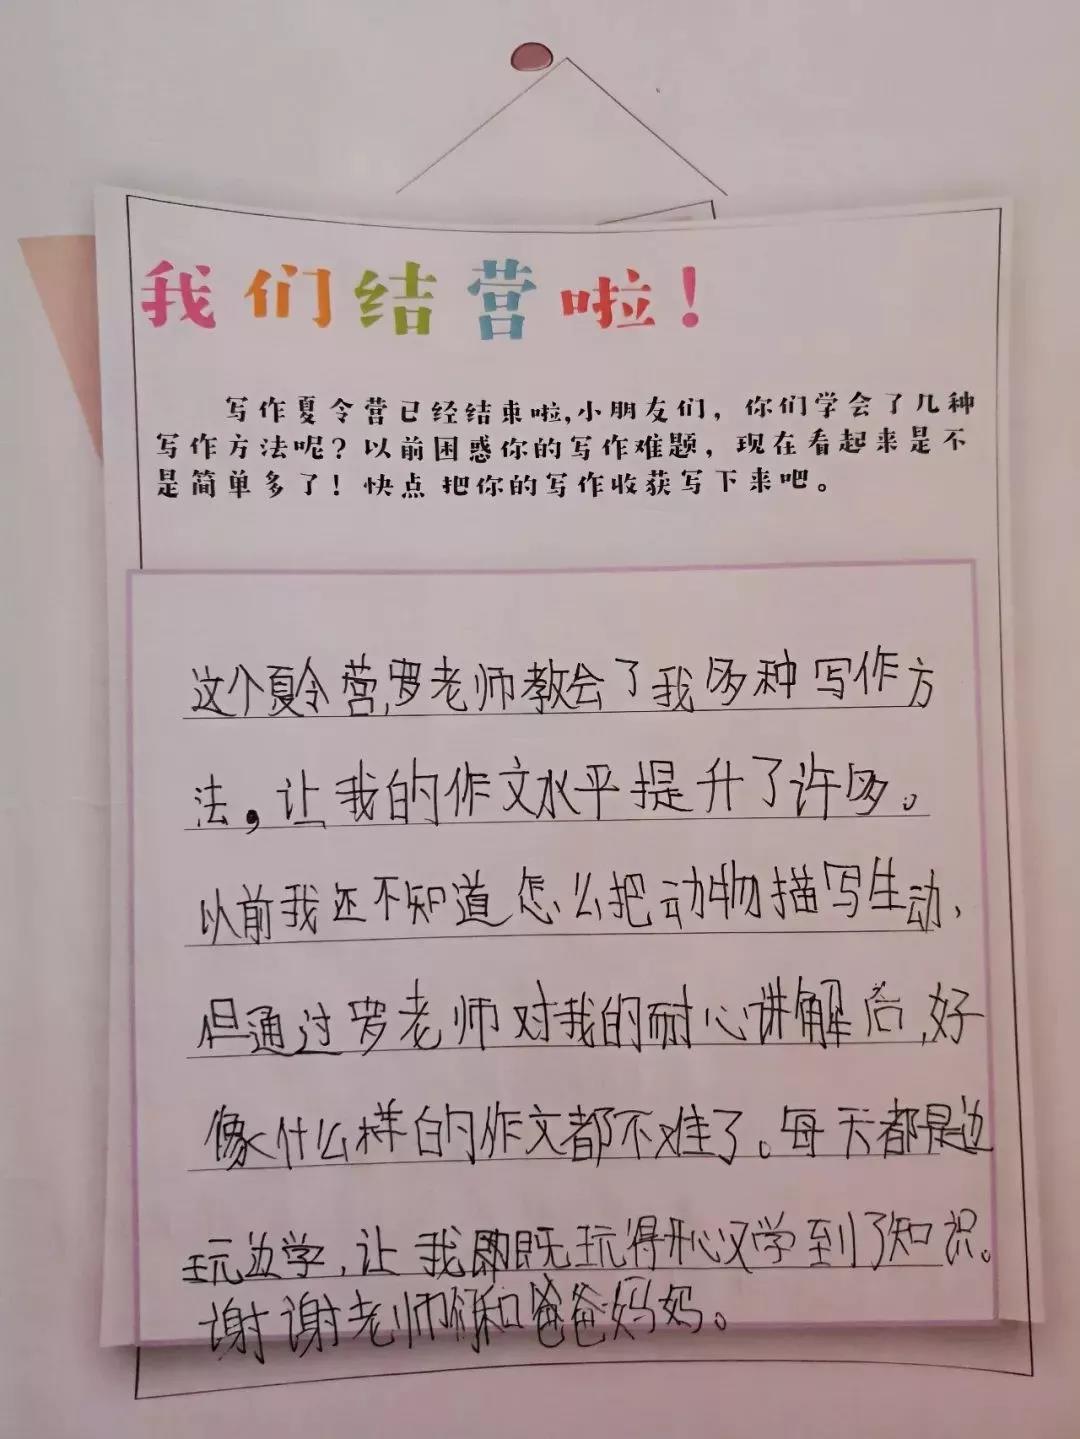 我们结营啦！
写作夏令营已经结束啦,小朋友们，你们学会了几种
写作方法呢？以前困惑你的写作难题，现在看起来是不
是简单多了！快点 把你的写作收获写下来吧。
这个夏令营,罗老师教会了我多种写作方
法，让我的作文水平提升了许多。
以前我还不知道怎么把动物描写生动，
但通过罗老师对我的耐心讲解后,好
像什么样的作文都不难了。每天都是边
玩边学，让我即既玩得开心又学到了知识。
谢谢老师们和爸爸妈妈。